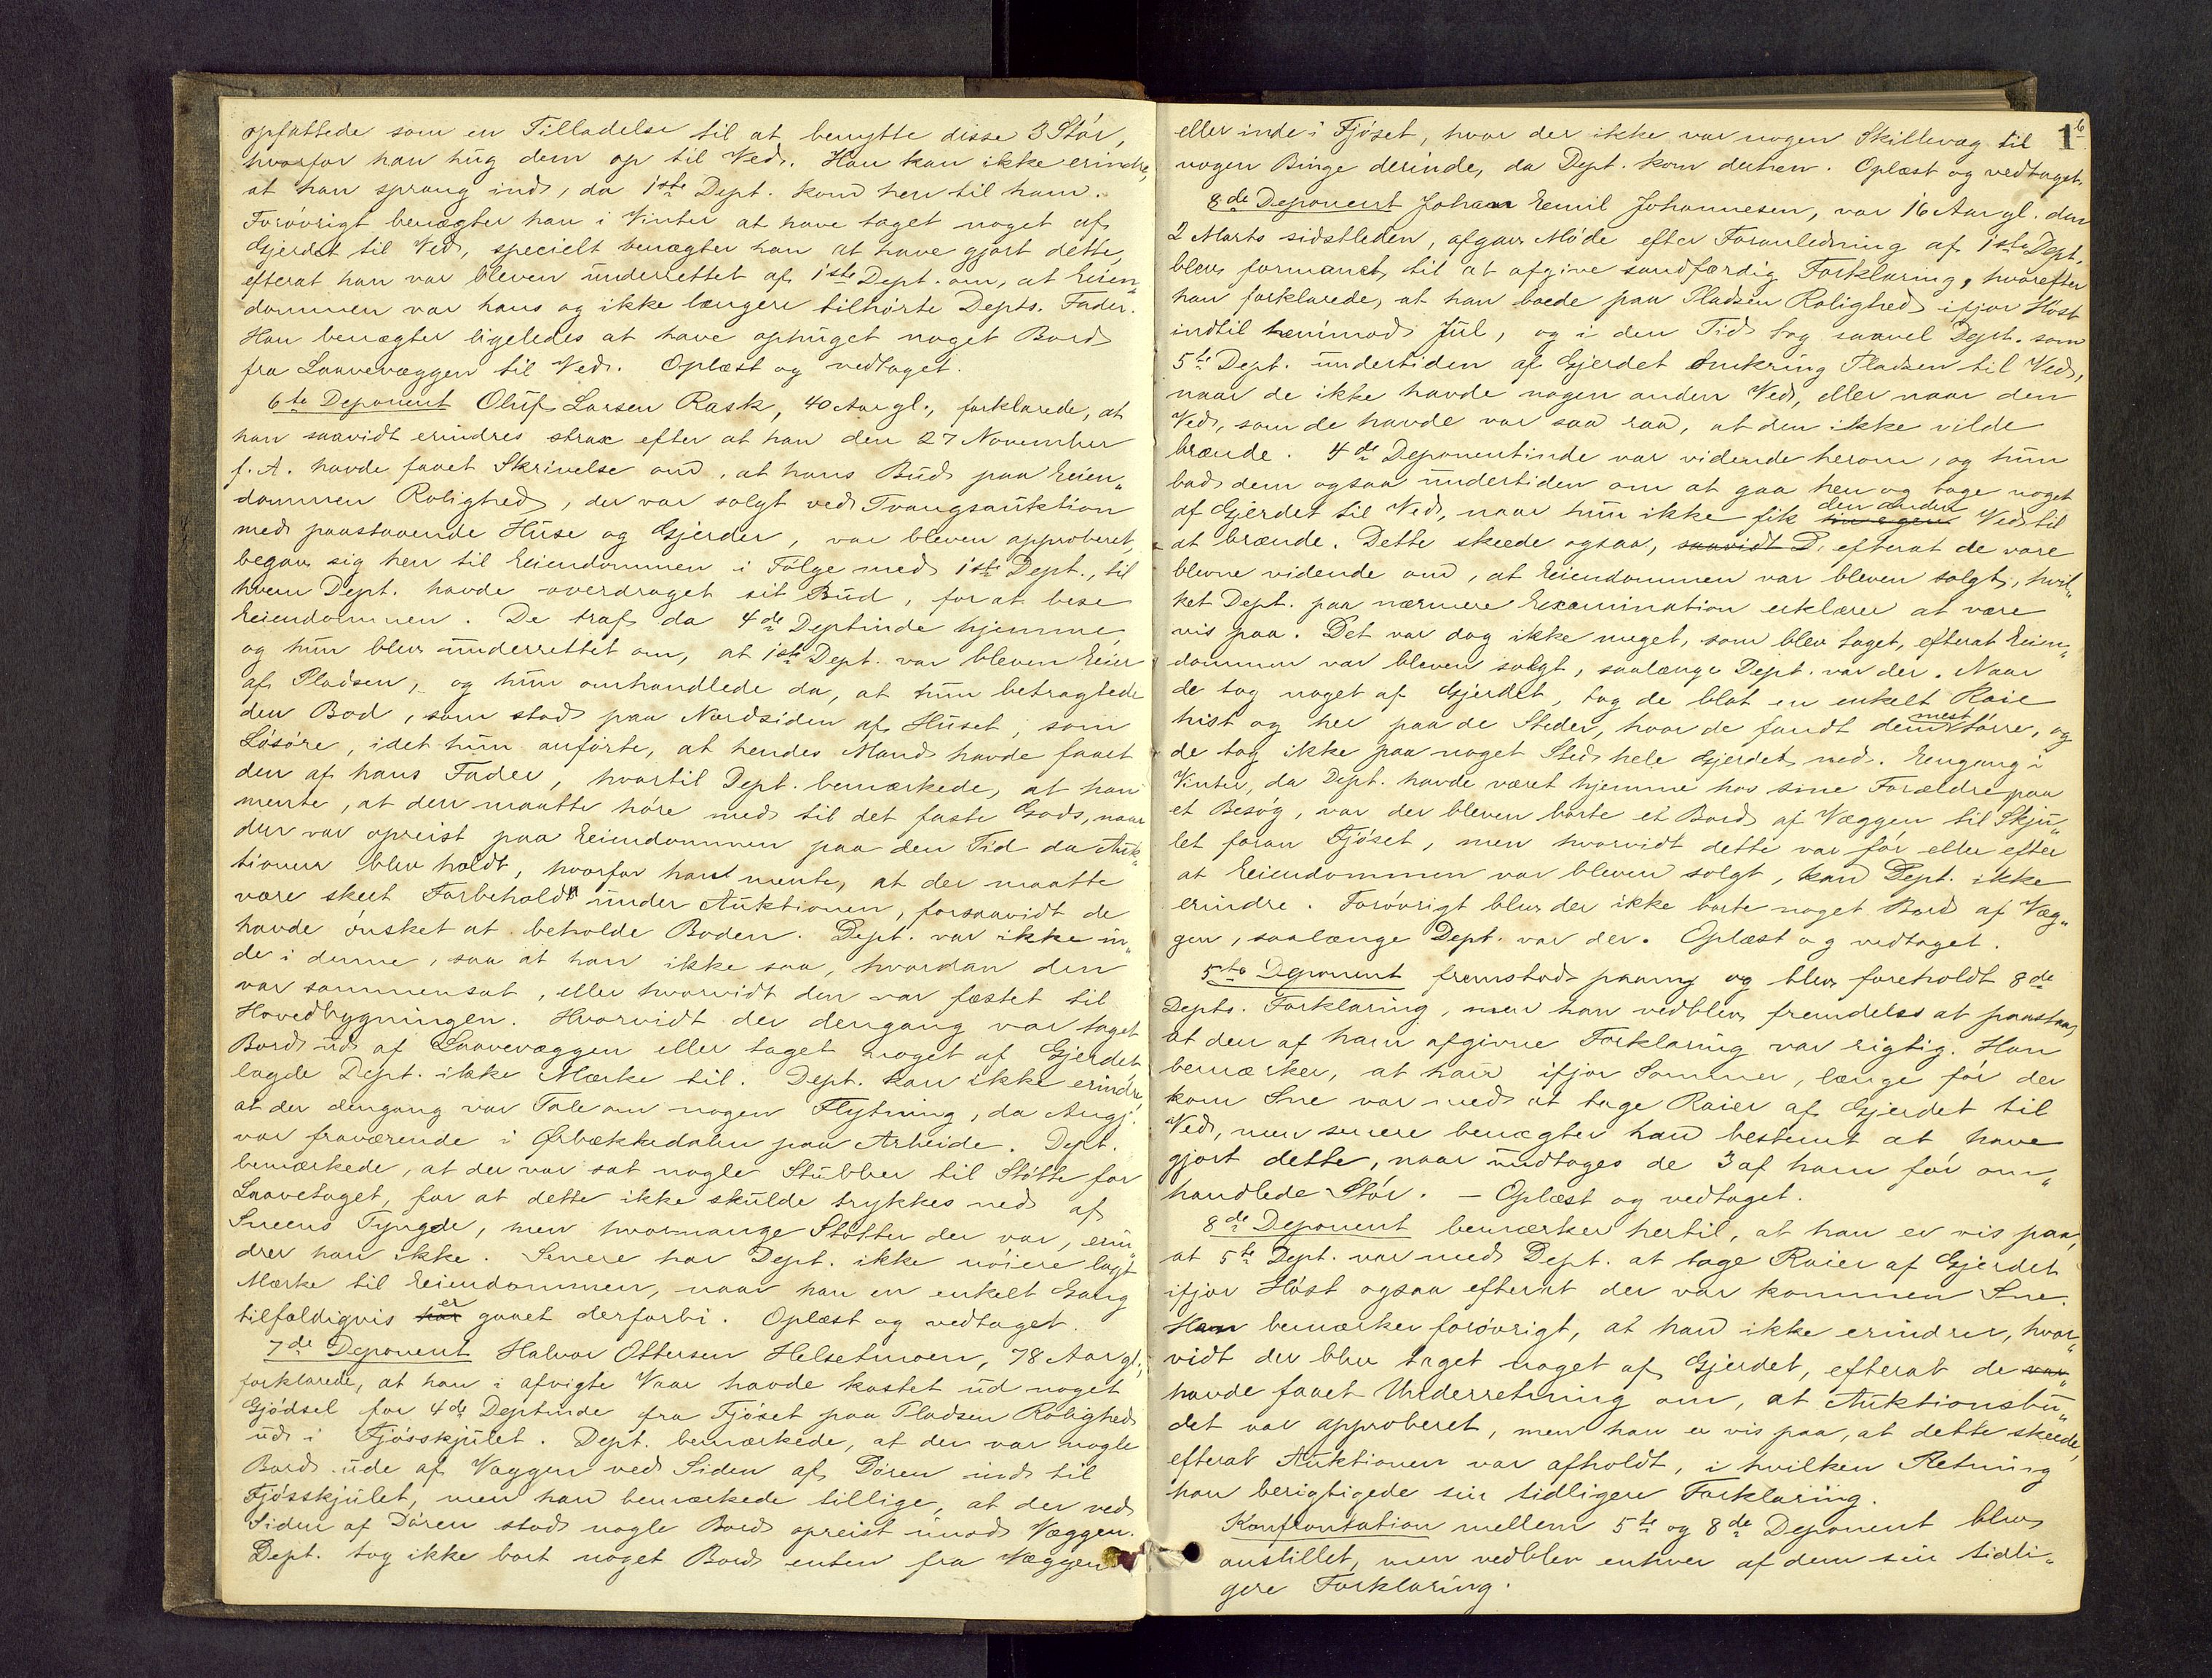 opfattede som en Tilladelse til at benytte disse 3 Stör,
hvorfor han hug dem op til Ved. Han kan ikke erindre,
at han sprang ind, da 1ste Dept. kom hen til ham.
Forövrigt benægter han i Vinter at have taget noget af
Gjerdet til Ved, specielt benægter han at have gjort dette,
efterat han var bleven underrettet af 1ste Dept. om, at Eien„
dommen var hans og ikke længere tilhörte Depts. Fader.
Han benægter ligeledes at have ophuget noget Bord
fra Laavevæggen til Ved. Oplæst og vedtaget.
6te Deponent Oluf Larsen Rask, 40 Aar gl., forklarede, at
han saavidt erindres strax efter at han den 27 November
f. A. havde faaet Skrivelse om, at hans Bud paa Eien„
dommen Rolighed, der var solgt ved Tvangsauktion
med paastaaende Huse og Gjerder, var bleven approberet,
begav sig hen til Eiendommen i Fölge med 1ste Dept., til
hvem Dept. havde overdraget sit Bud, for at bese
Eiendommen. De traf da 4de Deptinde hjemme
og hun blev underrettet om, at 1ste Dept. var bleven Eier
af Pladsen, og hun omhandlede da, at hun betragtede
den Bod, som stod paa Nordsiden af Huset, som
Lösöre, idet hun anförte, at hendes Mand havde faaet
den af hans Fader, hvortil Dept. bemærkede, at han
mente, at den maatte höre med til det faste Gods, naar
den var opreist paa Eiendommen paa den Tid da Auk„
tionen blev holdt, hvorfor han mente, at der maatte
være skeet Forbehold under Auktionen, forsaavidt de
havde önsket at beholde Boden. Dept. var ikke in„
de i denne, saa at han ikke saa, hvordan den
var sammensat, eller hvorvidt den var fæstet til
Hovedbygningen. Hvorvidt der dengang var taget
Bord ud af Laavevæggen eller taget noget af Gjerdet,
lagde Dept. ikke Mærke til. Dept. kan ikke erindre,
at der dengang var Tale om nogen Flytning, da Angj.
var fraværende i Ørbækkedalen paa Arbeide. Dept.
bemærkede, at der var sat nogle Stubber til Stötte for
Laavetaget, for at dette ikke skulde trykkes ned af
Sneens Tyngde, men hvormange Stötter der var, erin„
drer han ikke. Senere har Dept. ikke nöiere lagt
Mærke til Eiendommen, naar han en enkelt Gang
tilfældigvis har er gaaet derforbi. Oplæst og vedtaget.
7de Deponent Halvor Ottersen Helsetmoen, 78 Aar gl.,
forklarede, at han i afvigte Vaar havde kastet ud noget
Gjödsel for 4de Deptinde fra Fjöset paa Pladsen Rolighed
ud i Fjösskjulet. Dept. bemærkede, at der var nogle
Bord ude af Væggen ved Siden af Dören ind til
Fjösskjulet, men han bemærkede tillige, at der ved
Siden af Dören stod nogle Bord opreist imod Væggen.
Dept. tog ikke bort noget Bord enten fra Væggen
16
eller inde i Fjöset, hvor der ikke var nogen Skillevæg til
nogen Binge derinde, da Dept. kom derhen. Oplæst og vedtaget.
8de Deponent Johan Emil Johannesen, var 16 Aar gl. den
2 Marts sidstleden, afgav Möde efter Foranledning af 1ste Dept.
blev formanet til at afgive sandfærdig Forklaring, hvorefter
han forklarede, at han boede paa Pladsen Rolighed ifjor Höst
indtil henimod Jul, og i den Tid tog saavel Dept. som
5te Dept. undertiden af Gjerdet omkring Pladsen til Ved,
naar de ikke havde nogen anden Ved, eller naar den
Ved, som de havde var saa raa, at den ikke vilde
brænde. 4de Deponentinde var vidende herom, og hun
bad dem ogsaa undertiden om at gaa hen og tage noget
af Gjerdet til Ved, naar hun ikke fik den anden Ved til
at brænde. Dette skede ogsaa, saavidt D. efterat de vare
blevne vidende om, at Eiendommen var bleven solgt, hvil„
ket Dept. paa nærmere Examination erklærer at være
vis paa. Det var dog ikke meget, som blev taget, efterat Eien„
dommen var bleven solgt, saalænge Dept. var der. Naar
de tog noget af Gjerdet, tog de blot en enkelt Raie
hist og her paa de Steder, hvor de fandt dem mest törre, og
de tog ikke paa noget Sted hele Gjerdet ned. Engang i
Vinter, da Dept. havde været hjemme hos sine Forældre paa
et Besög, var der bleven borte et Bord af Væggen til Skju„
let foran Fjöset, men hvorvidt dette var för eller efter
at Eiendommen var bleven solgt, kan Dept. ikke
erindre. Forövrigt blev der ikke borte noget Bord af Væg„
gen, saalænge Dept. var der. Oplæst og vedtaget.
5te Deponent fremstod paany og blev foreholdt 8de
Depts. Forklaring, men han vedblev fremdeles at paastaa,
at den af ham afgivne Forklaring var rigtig. Han
bemærker, at han ifjor Sommer, længe för der
kom Sne var med at tage Raier af Gjerdet til
Ved, men senere benægter han bestemt at have
gjort dette, naar undtages de 3 af ham för om„
handlede Stör. – Oplæst og vedtaget.
8de Deponent bemærker hertil, at han er vis paa,
at 5te Dept. var med Dept. at tage Raier af Gjerdet
ifjor Höst ogsaa efterat der var kommen Sne.
Han bemærker forövrigt, at han ikke erindrer, hvor„
vidt der blev taget noget af Gjerdet, efterat de var
havde faaet Underretning om, at Auktionsbu„
det var approberet, men han er vis paa, at dette skede,
efterat Auktionen var afholdt, i hvilken Retning
han berigtigede sin tidligere Forklaring.
Konfrontation mellem 5te og 8de Deponent blev
anstillet, men vedblev enhver af dem sin tidli„
gere Forklaring.